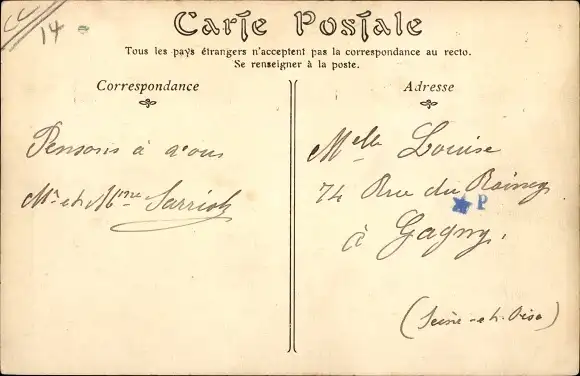 CC
14
Carte Postale
Tous les pays étrangers n'acceptent pas la correspondance au recto.
Se renseigner à la poste.
Correspondance
Pensons à vous
Mr et Mme
Adresse
Melle Louise
74 Rue du Raincy
P
à Gagny.
(Seine-et-Oise)